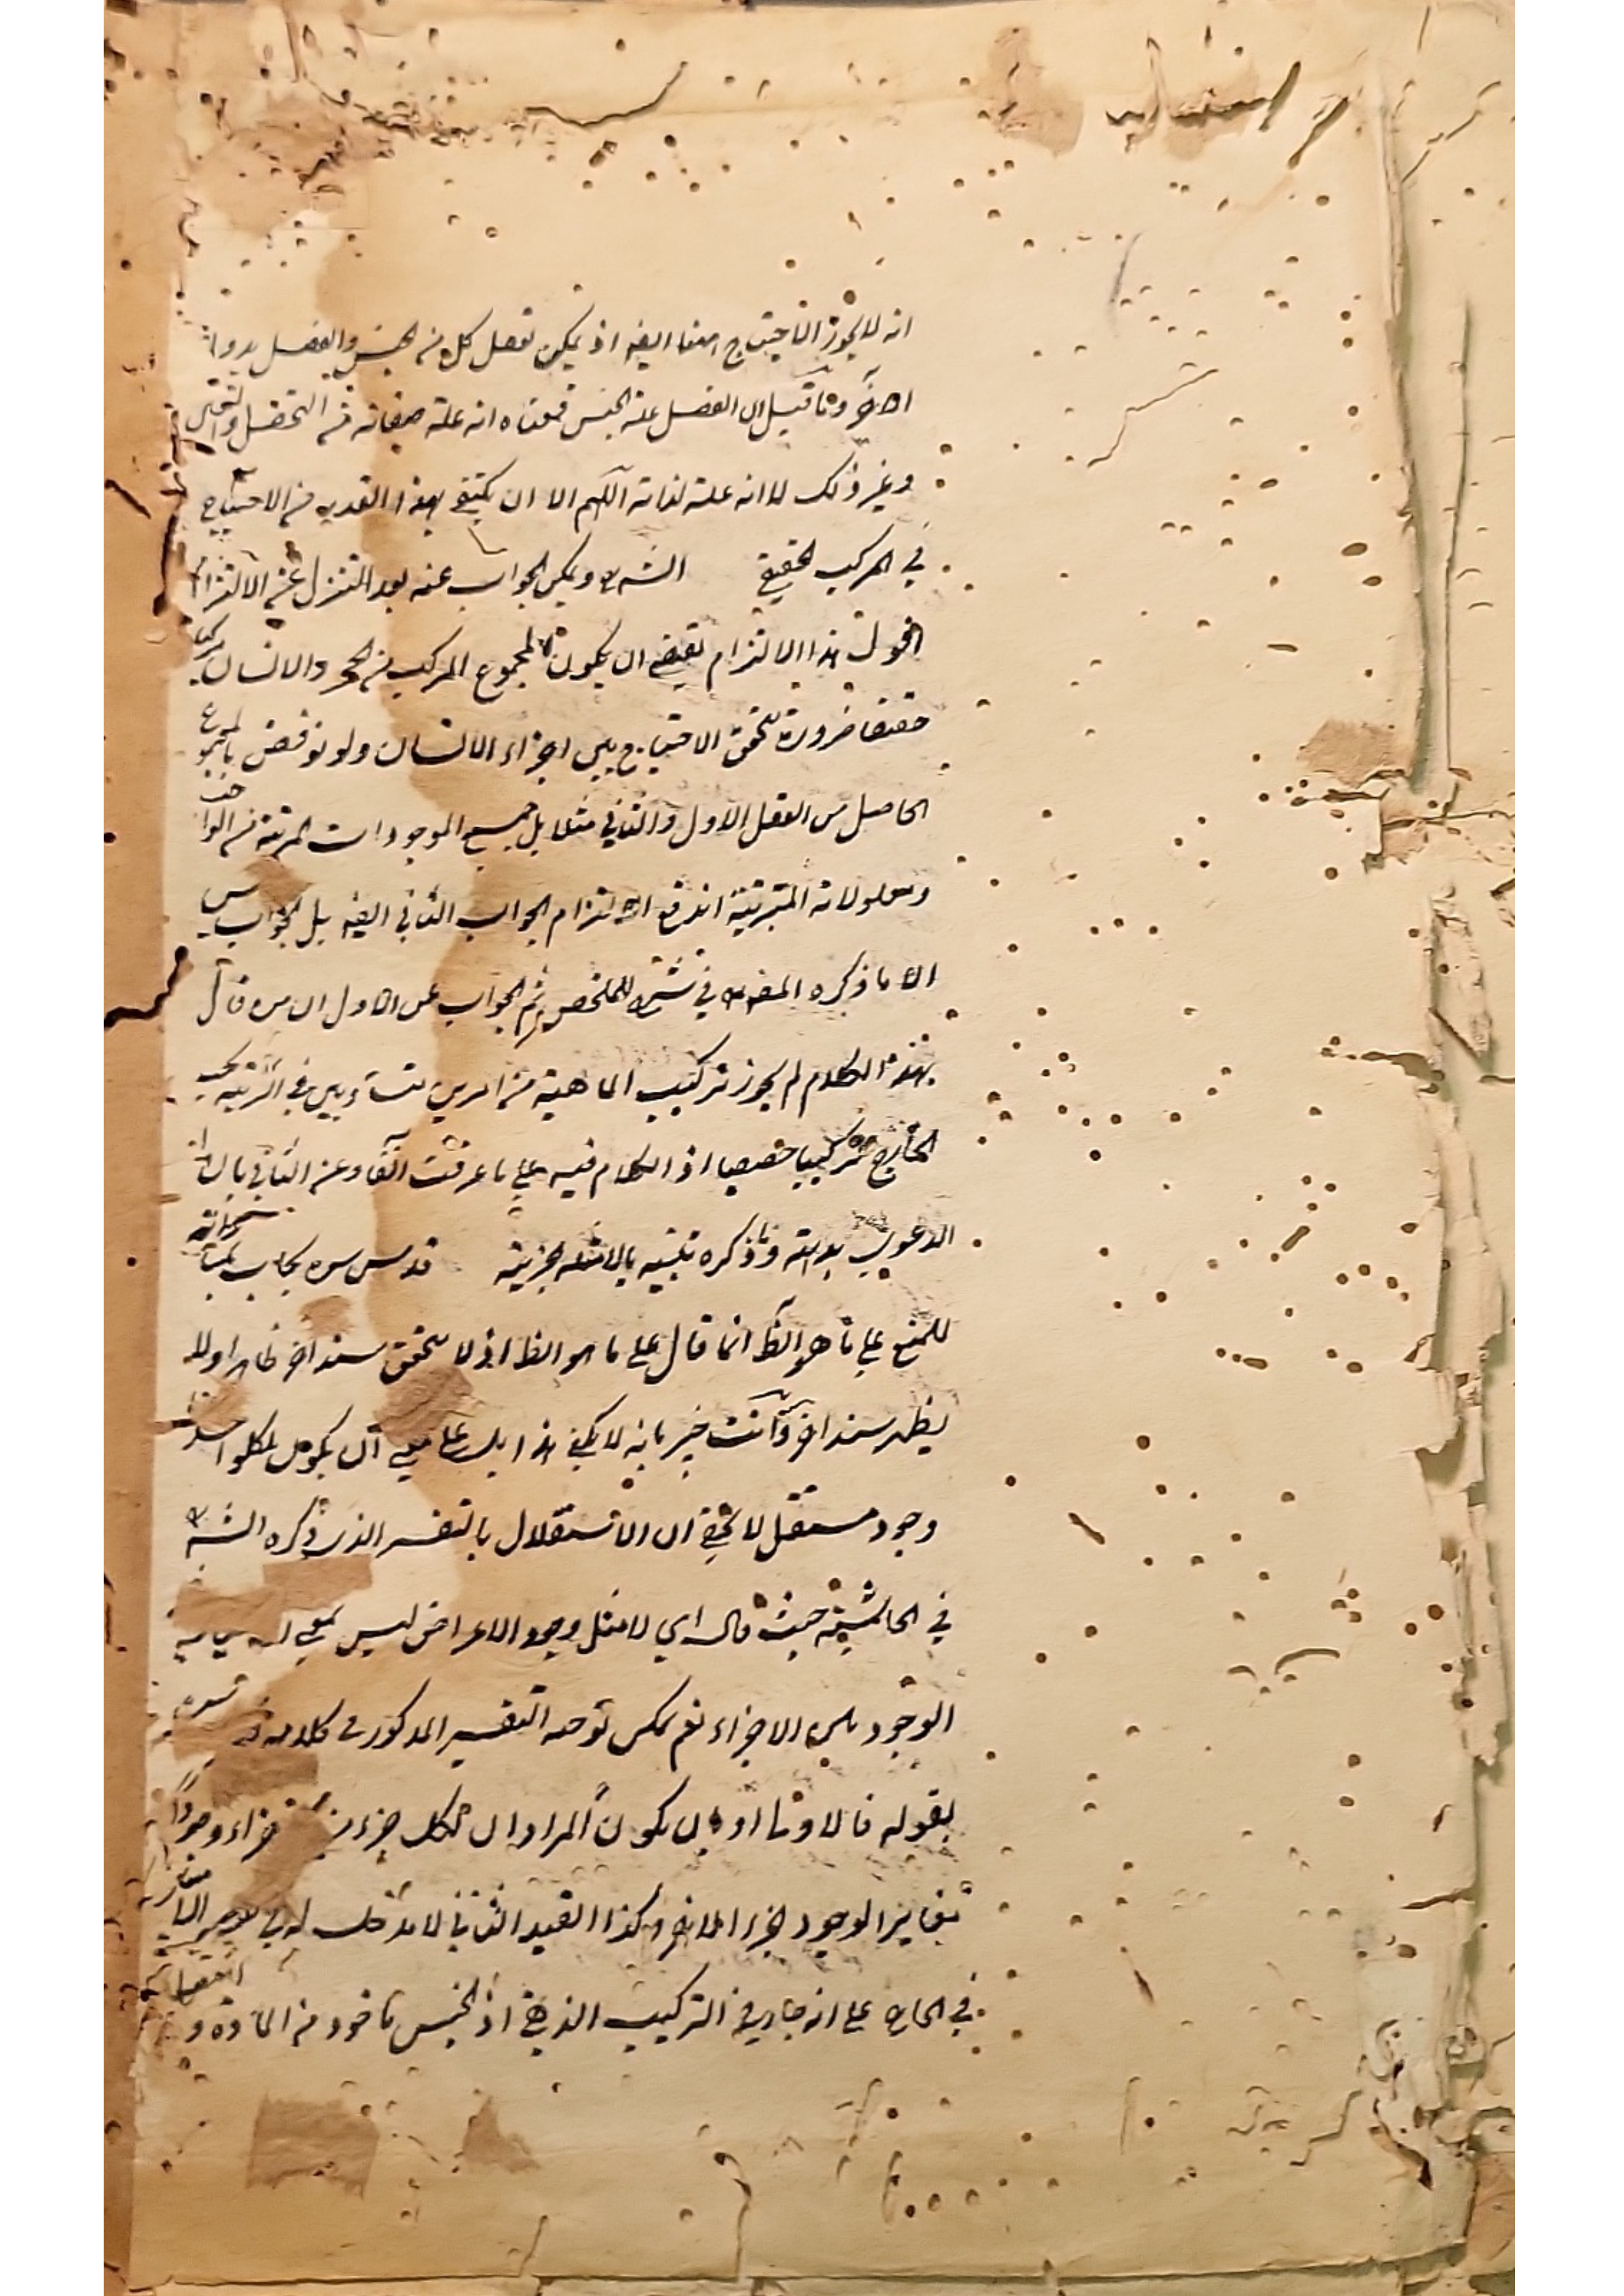 انه لا يجوز الاحتياج ايضا اذ يمكن تعقل كل من الجنس والفصل بدون
الآخر وما قيل ان الفصل علة الجنس فمعناه انه علة صفاته من التحصل والتعين
وغير ذلك لا انه علة لذاته اللهم الا ان يكتفي بهذا القدر من الاحتياج
في المركب الحقيقي ويمكن الجواب عنه بعد التنزل عن الالتزام
اقول هذا الالتزام يقتضي ان يكون المجموع المركب من الحجر والانسان مركبا
حقيقيا ضرورة تحقق الاحتياج بين اجزاء الانسان ولو نوقض بالمجموع
الحاصل من العقل الاول والثاني مثلا بل جميع الموجودات المترتبة من الواجب
ومعلولاته المترتبة اندفع التزام الجواب الثاني ايضا بل الجواب ليس
الا ما ذكره في شرح الملخص ثم الجواب عن الاول ان من قال
بهذا الكلام لم يجوز تركيب الماهية من امرين متساويين في المرتبة بحسب
الخارج تركيبا حقيقيا اذ الكلام فيه على ما عرفت آنفا وعن الثاني بان
الدعوى بديهية وما ذكره تنبيه بالامثلة الجزئية قدس سره
للمنع على ما هو الظ انما قال على ما هو الظ اذ لا يتحقق سند آخر ظاهرا ولا
يظهر سند آخر وانت خبير بانه لا يكفي هذا بل على ان يكون لكل واحد
وجود مستقل لا يخفى ان الاستقلال بالتفسير الذي ذكره
في الحاشية حيث قال اي لا مثل وجود الاعراض ليس بمعنى
الوجود بين الاجزاء نعم يمكن توجه التفسير المذكور في كلامه
بقوله فالاولى ان يكون المراد ان لكل جزء من الاجزاء وجودا
بتغاير الوجود لجزء الآخر وكذا القيد الثاني لا مدخل له في
في الخارج على انه جار في التركيب الذهني اذ الجنس ماخوذ من المادة و